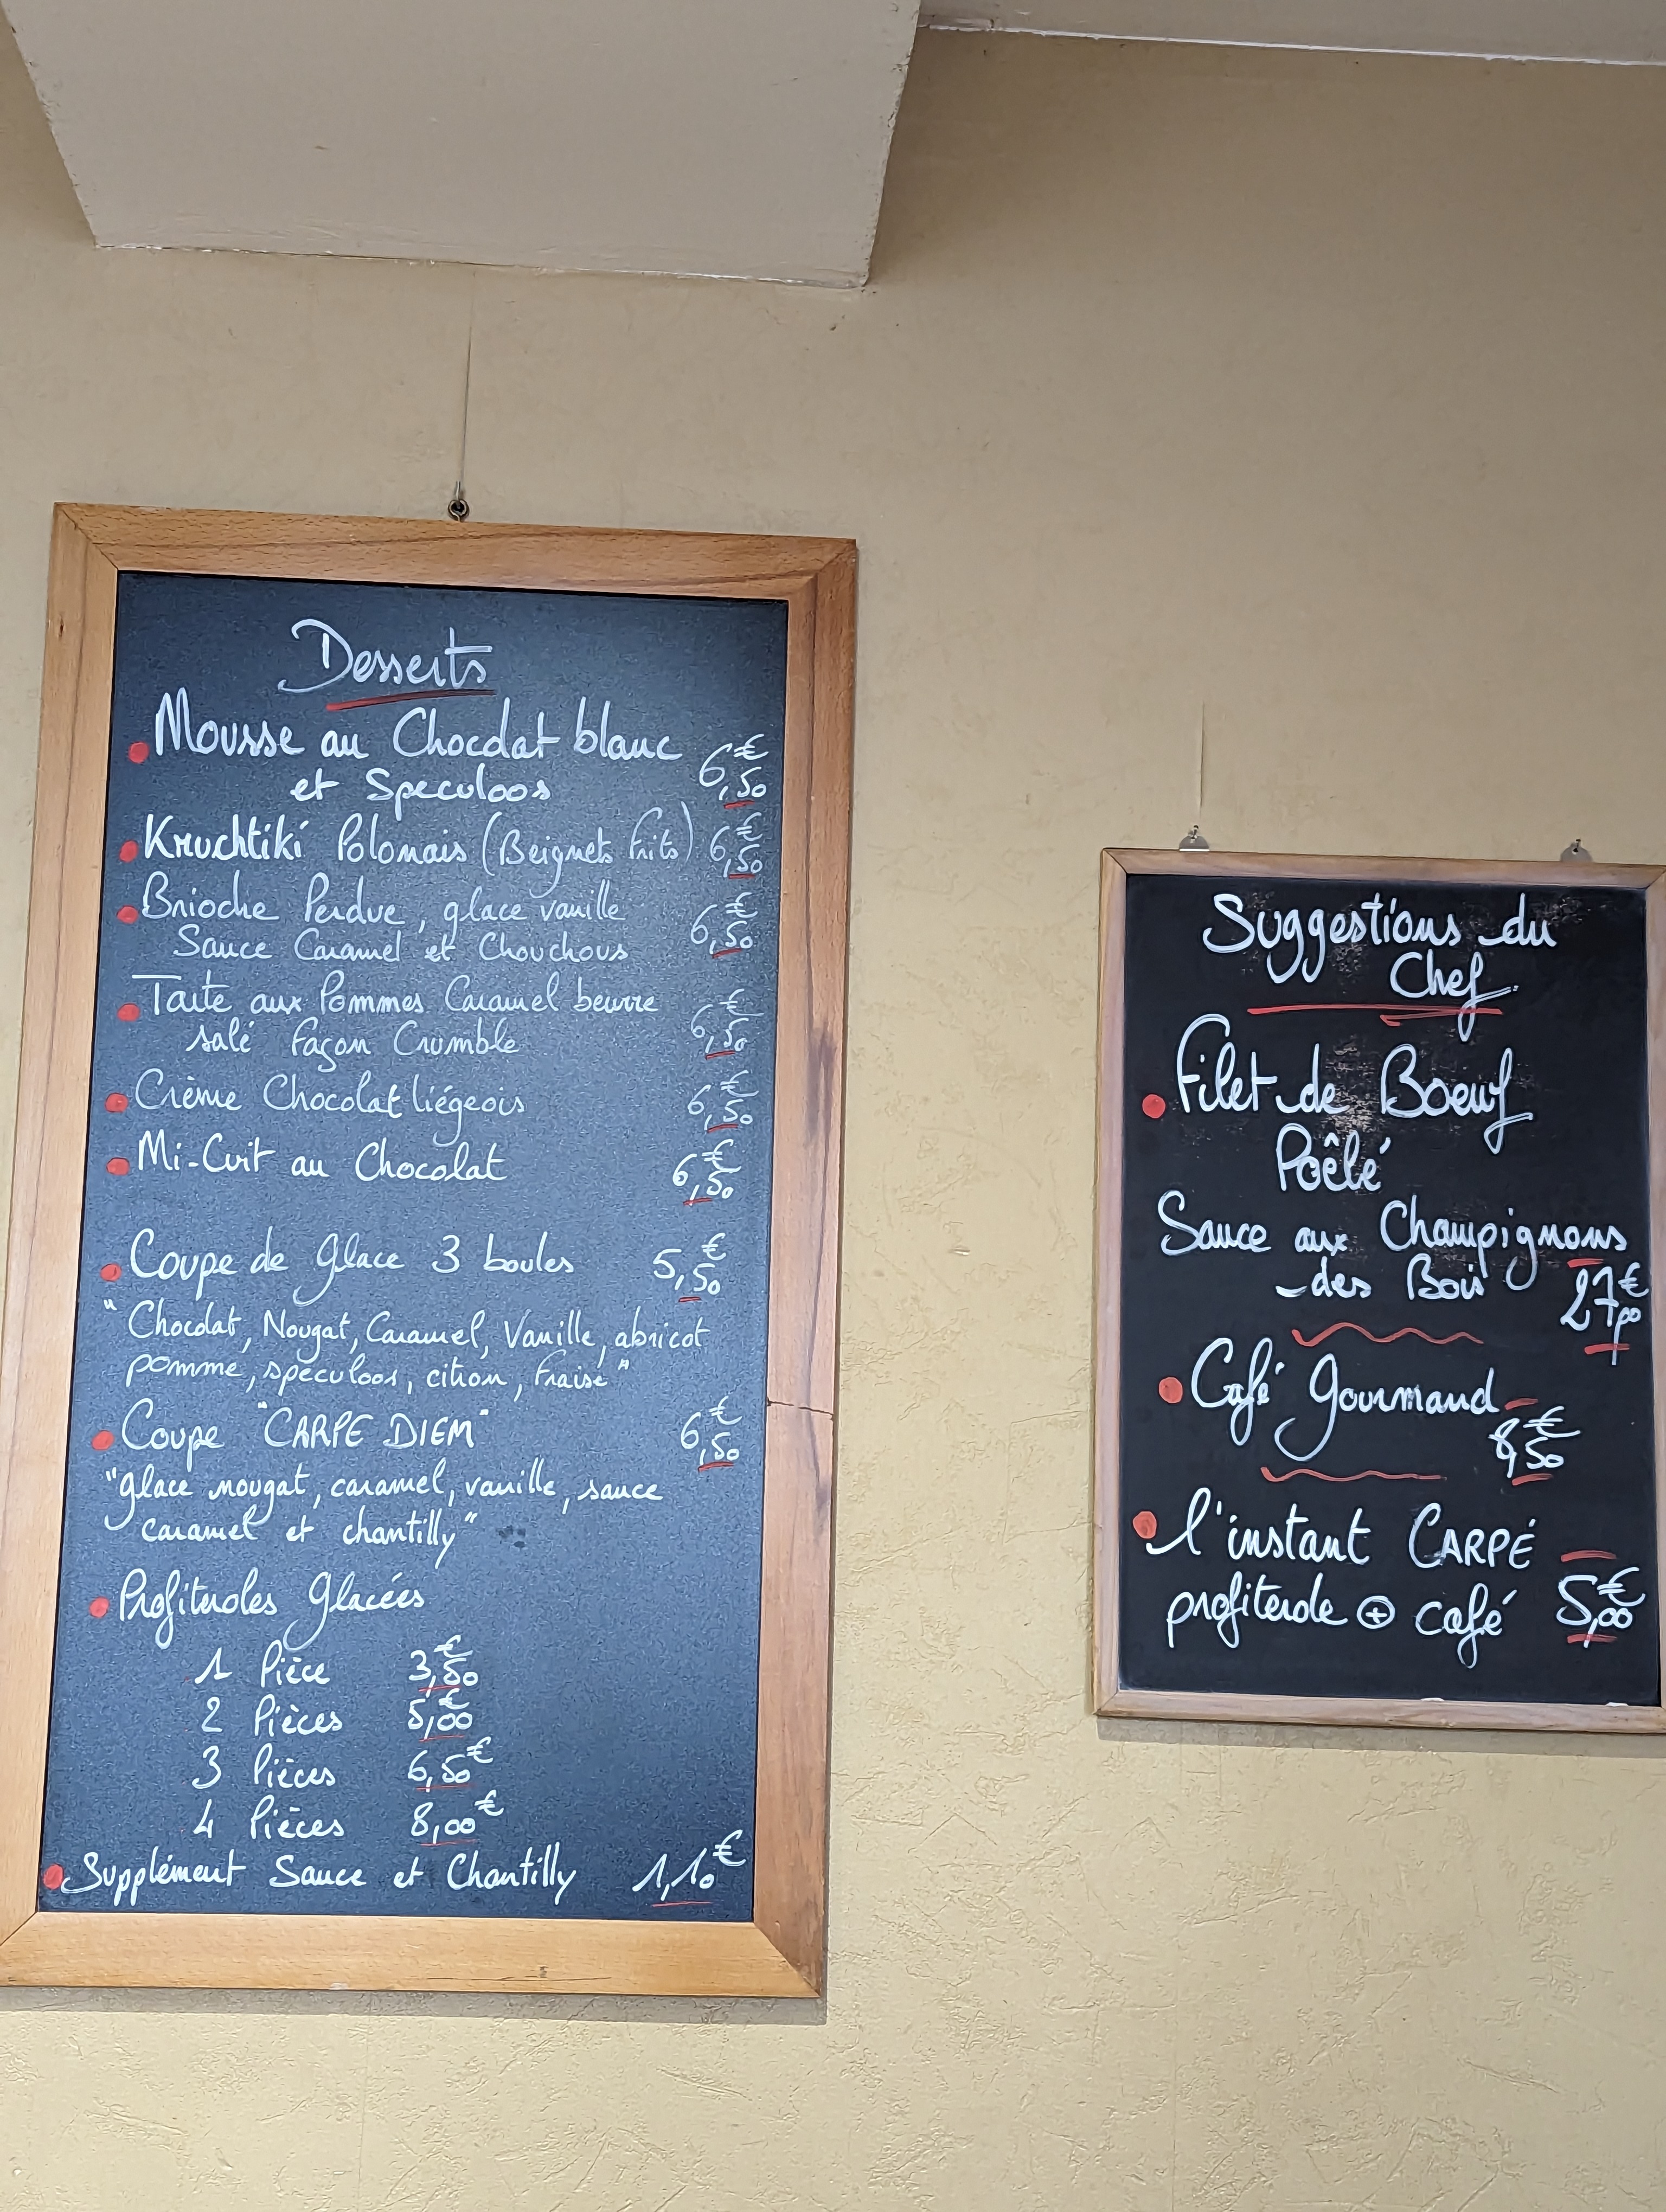 Desserts
Mousse au Chocolat blanc
et Speculoos 6,50€
Kruchtiki Polonais (Beignets frits) 6,50€
Brioche Perdue, glace vanille
Sauce Caramel et Chouchous 6,50€
Tarte aux Pommes Caramel beurre
salé façon Crumble 6,50€
Crème Chocolat liégeois 6,50€
Mi-Cuit au Chocolat 6,50€
Coupe de glace 3 boules 5,50€
"Chocolat, Nougat, Caramel, Vanille, abricot
pomme, speculoos, citron, fraise"
Coupe "CARPE DIEM" 6,50€
"glace nougat, caramel, vanille, sauce
caramel et chantilly"
Profiteroles Glacées
1 Pièce 3,50€
2 Pièces 5,00€
3 Pièces 6,50€
4 Pièces 8,00€
Supplément Sauce et Chantilly 1,10€
Suggestions du
Chef.
Filet de Boeuf
Poêlé
Sauce aux Champignons
des Bois 27,00€
Café Gourmand
8,50€
l'instant CARPÉ
profiterole + café 5,00€